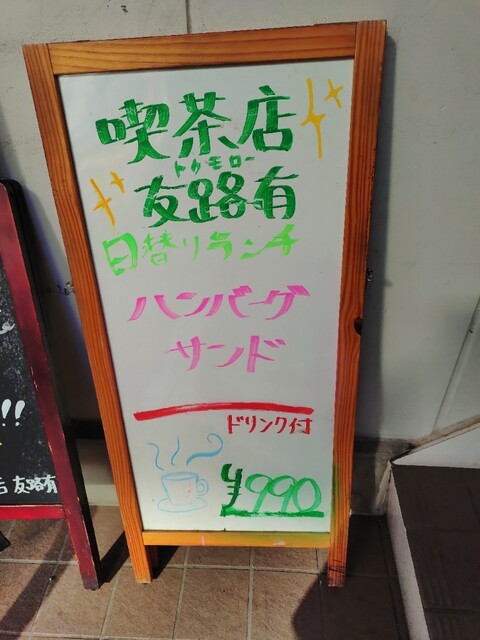 喫茶店
トゥモロー
友路有
日替りランチ
ハンバーグ
サンド
ドリンク付
¥990
!!
店 友路有